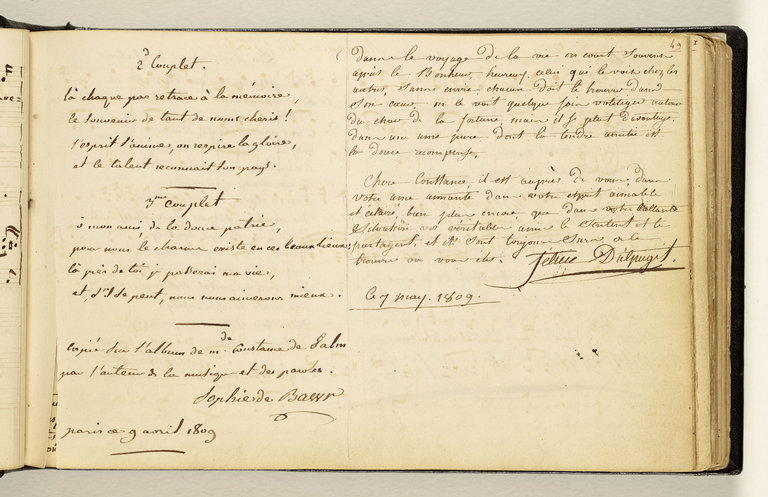 2d Couplet.
là chaque pas retrace à la mémoire,
le souvenir de tant de noms cheris !
l'esprit s'anime, on respire la gloire,
et le talent reconnait son pays.
3me couplet
ô mon ami, de la douce patrie,
pour nous le charme existe en ces beaux lieux,
là près de toi je passerai ma vie,
et, s'il se peut, nous nous aimerons mieux.
copié sur l'album de mde Constance de Salm
par l'auteur de la musique et des paroles.
Sophie de Bawr
paris ce 9 avril 1809
49
1
Dans le voyage de la vie on court souvent
après le Bonheur, heureux celui qui le voit chez les
autres, sans envie, chacun doit le trouver dans
son cœur, on le voit quelque fois voltiger autour
du char de la fortune mais il se plait d'avantage
dans une ame pure dont la tendre amitié est
la douce recompense.
Chere Constance, il est auprès de vous, dans
votre ame aimante dans votre esprit aimable
et éclairé, bien plus encore que dans votre brillante
vos véritables amis le sentent et le
partagent, et ils sont toujours surs de le
trouver où vous etes.
le 7 may. 1809.